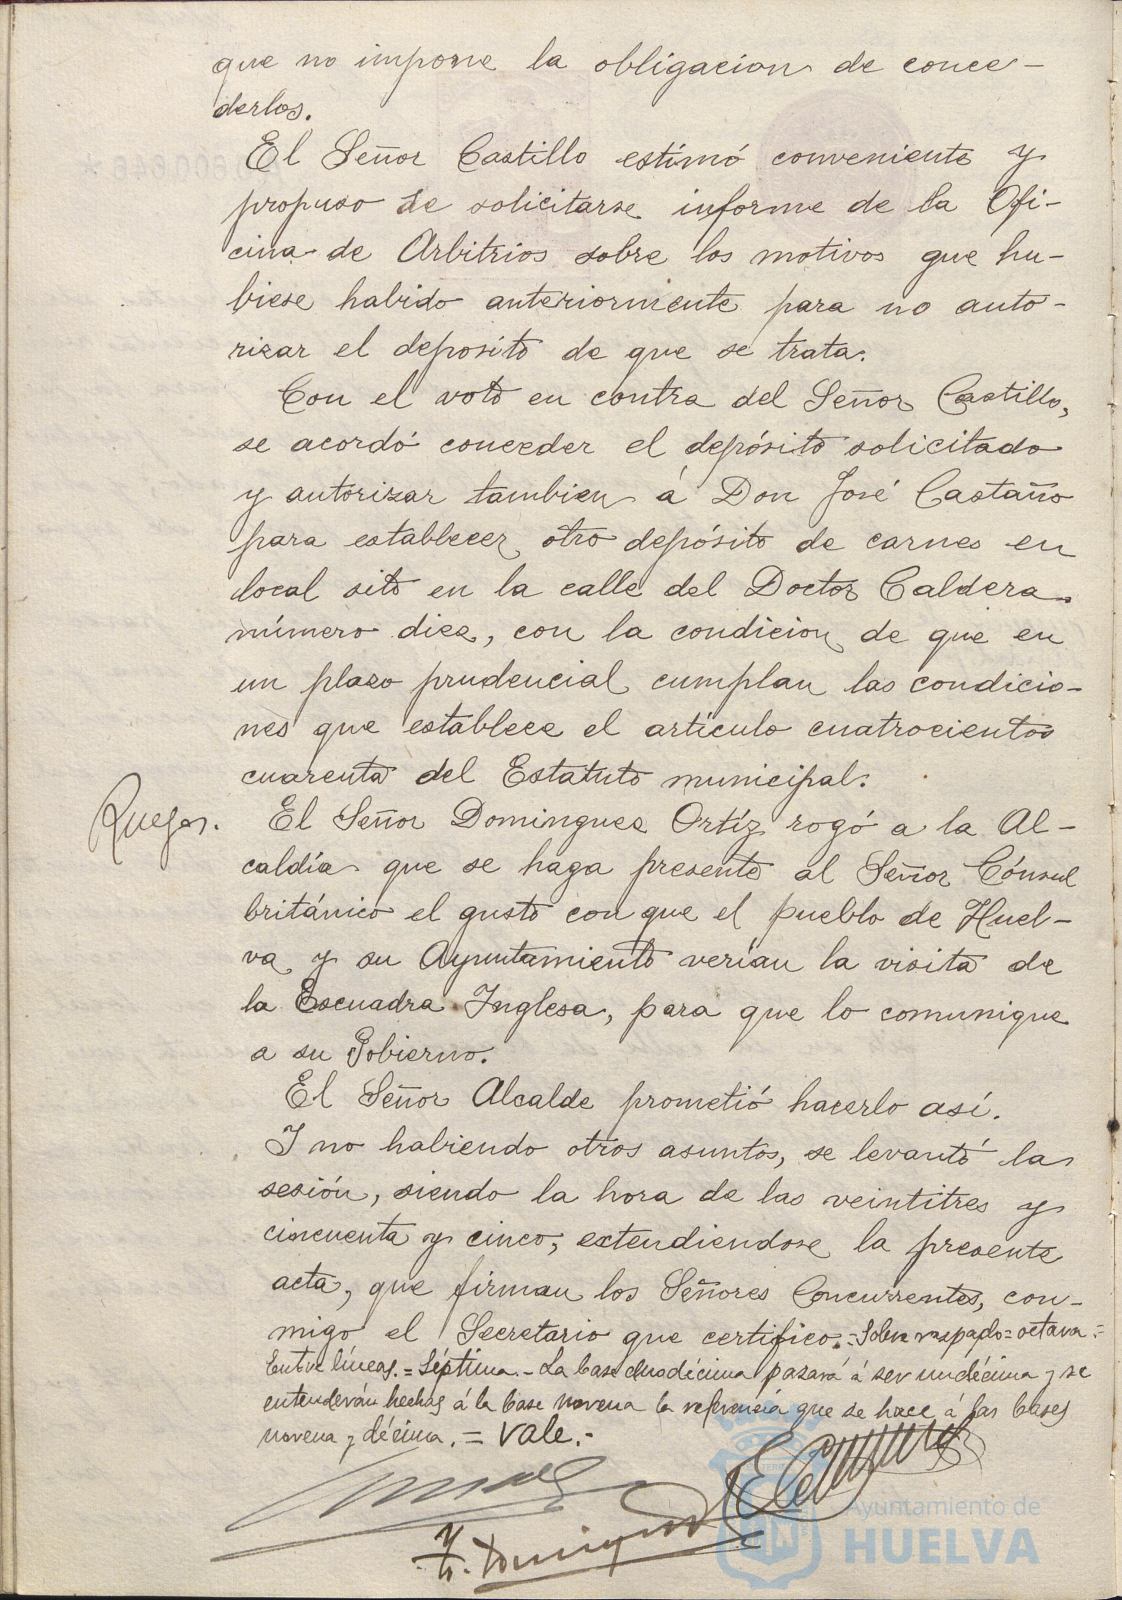 que no impone la obligacion de conce-
derlos.
El Señor Castillo estimó conveniente y
propuso se solicitarse informe de la Ofi-
cina de Arbitrios sobre los motivos que hu-
biese habido anteriormente para no auto-
rizar el deposito de que se trata.
Con el voto en contra del Señor Castillo,
se acordó conceder el depósito solicitado
y autorizar tambien á Don José Castaño
para establecer otro depósito de carnes en
local sito en la calle del Doctor Caldera
número diez, con la condicion de que en
un plazo prudencial cumplan las condicio-
nes que establece el artículo cuatrocientos
cuarenta del Estatuto municipal.
Ruegos.
El Señor Dominguez Ortíz rogó a la Al-
caldía que se haga presente al Señor Cónsul
británico el gusto con que el pueblo de Huel-
va y su Ayuntamiento verían la visita de
la Escuadra Inglesa, para que lo comunique
a su Gobierno.
El Señor Alcalde prometió hacerlo así.
Y no habiendo otros asuntos, se levantó la
sesión, siendo la hora de las veintitres y
cincuenta y cinco, extendiendose la presente
acta, que firman los Señores Concurrentes, con-
migo el Secretario que certifico.=Sobre raspado=octava=
Entre líneas.=Séptima.-La base duodécima pasará á ser undécima y se
entenderán hechas á la base novena la referencia que se hace á las bases
novena y décima.=Vale.-
Ayuntamiento de
HUELVA